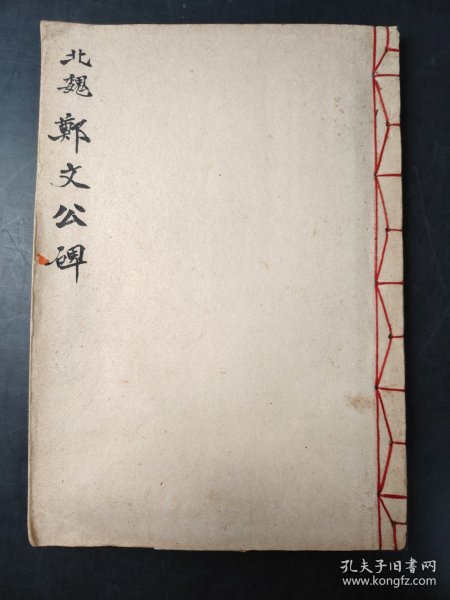 北魏 鄭文公碑
孔夫子旧书网
www.kongfz.com